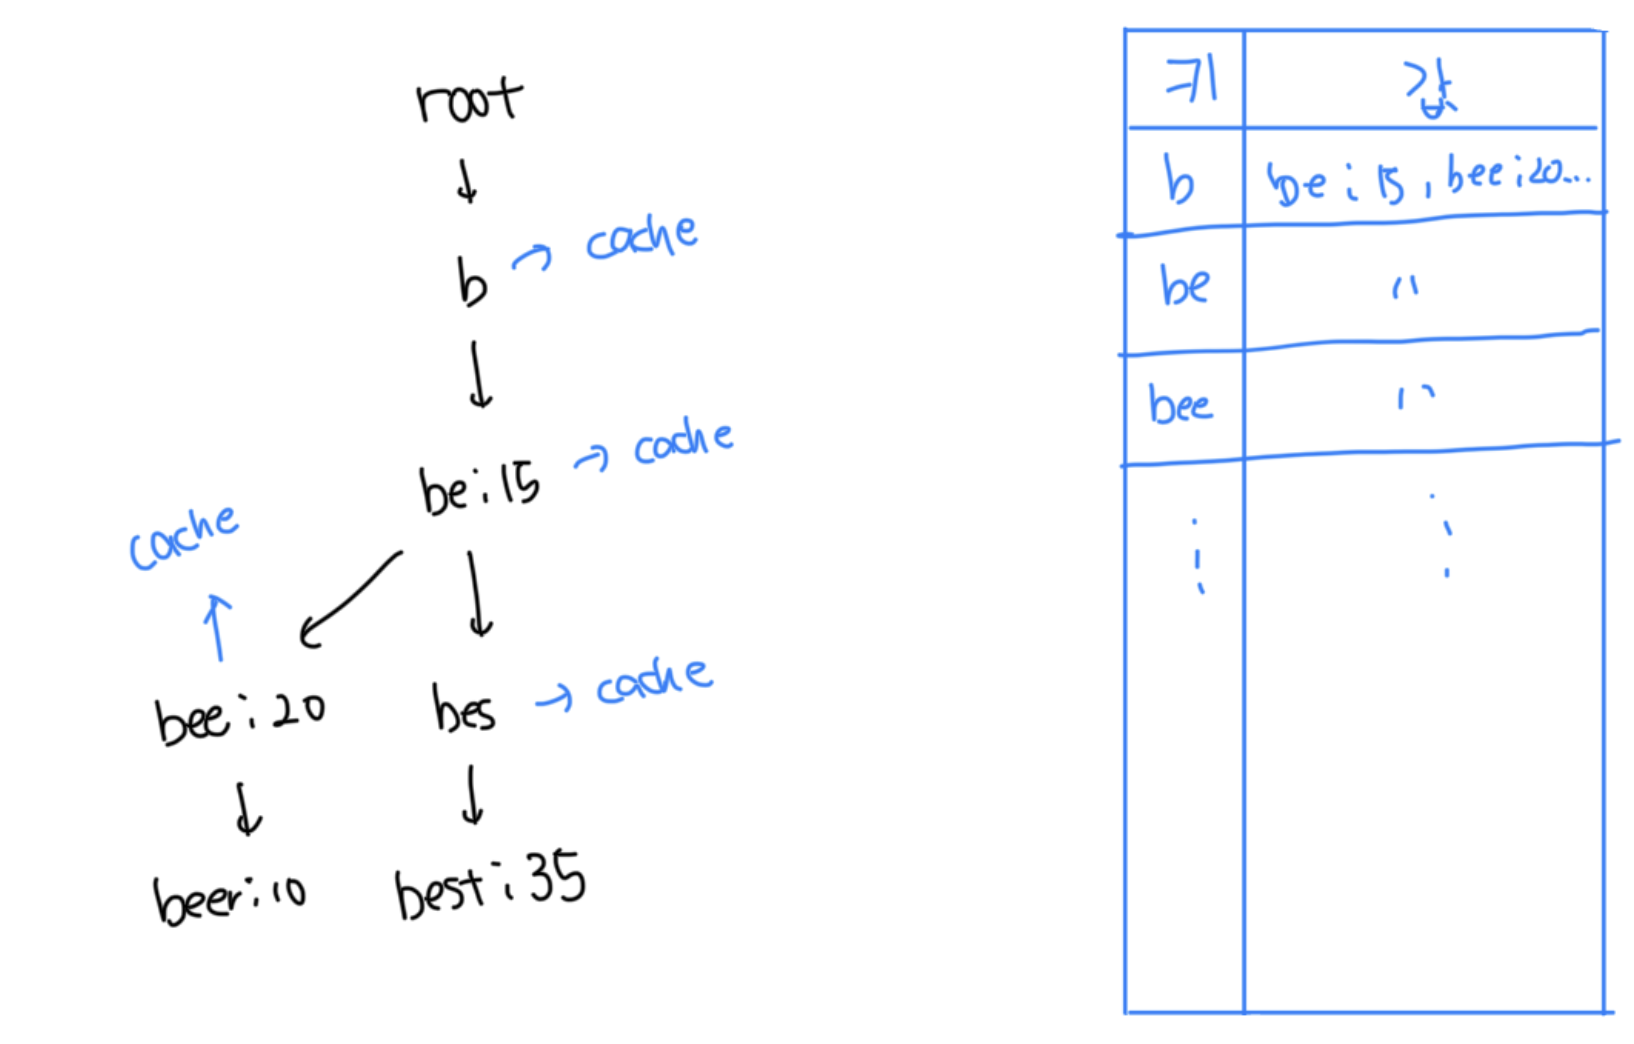 root
b → cache
be:15 → cache
cache
bee:20
bes → cache
beer:10
best:35
키 값
b be:15, bee:20...
be "
bee "
⋮ ⋮